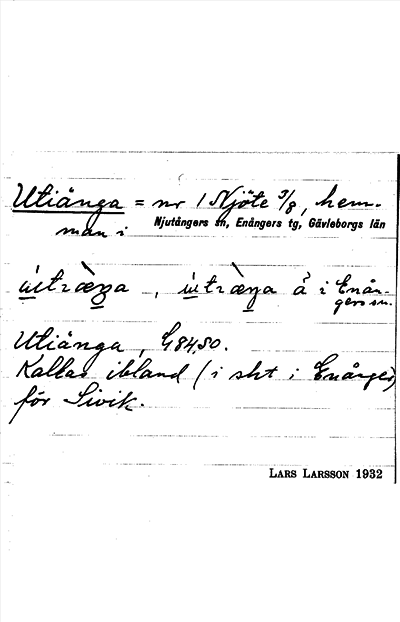 Utiänga = nr 1 Njöte 3/8, hem-
man i Njutångers sn, Enångers tg, Gävleborgs län
å i Enån-
gers sn.
Utiänga, G84,80.
Kallas ibland (i sht i Enånger)
för Sivik.
LARS LARSSON 1932